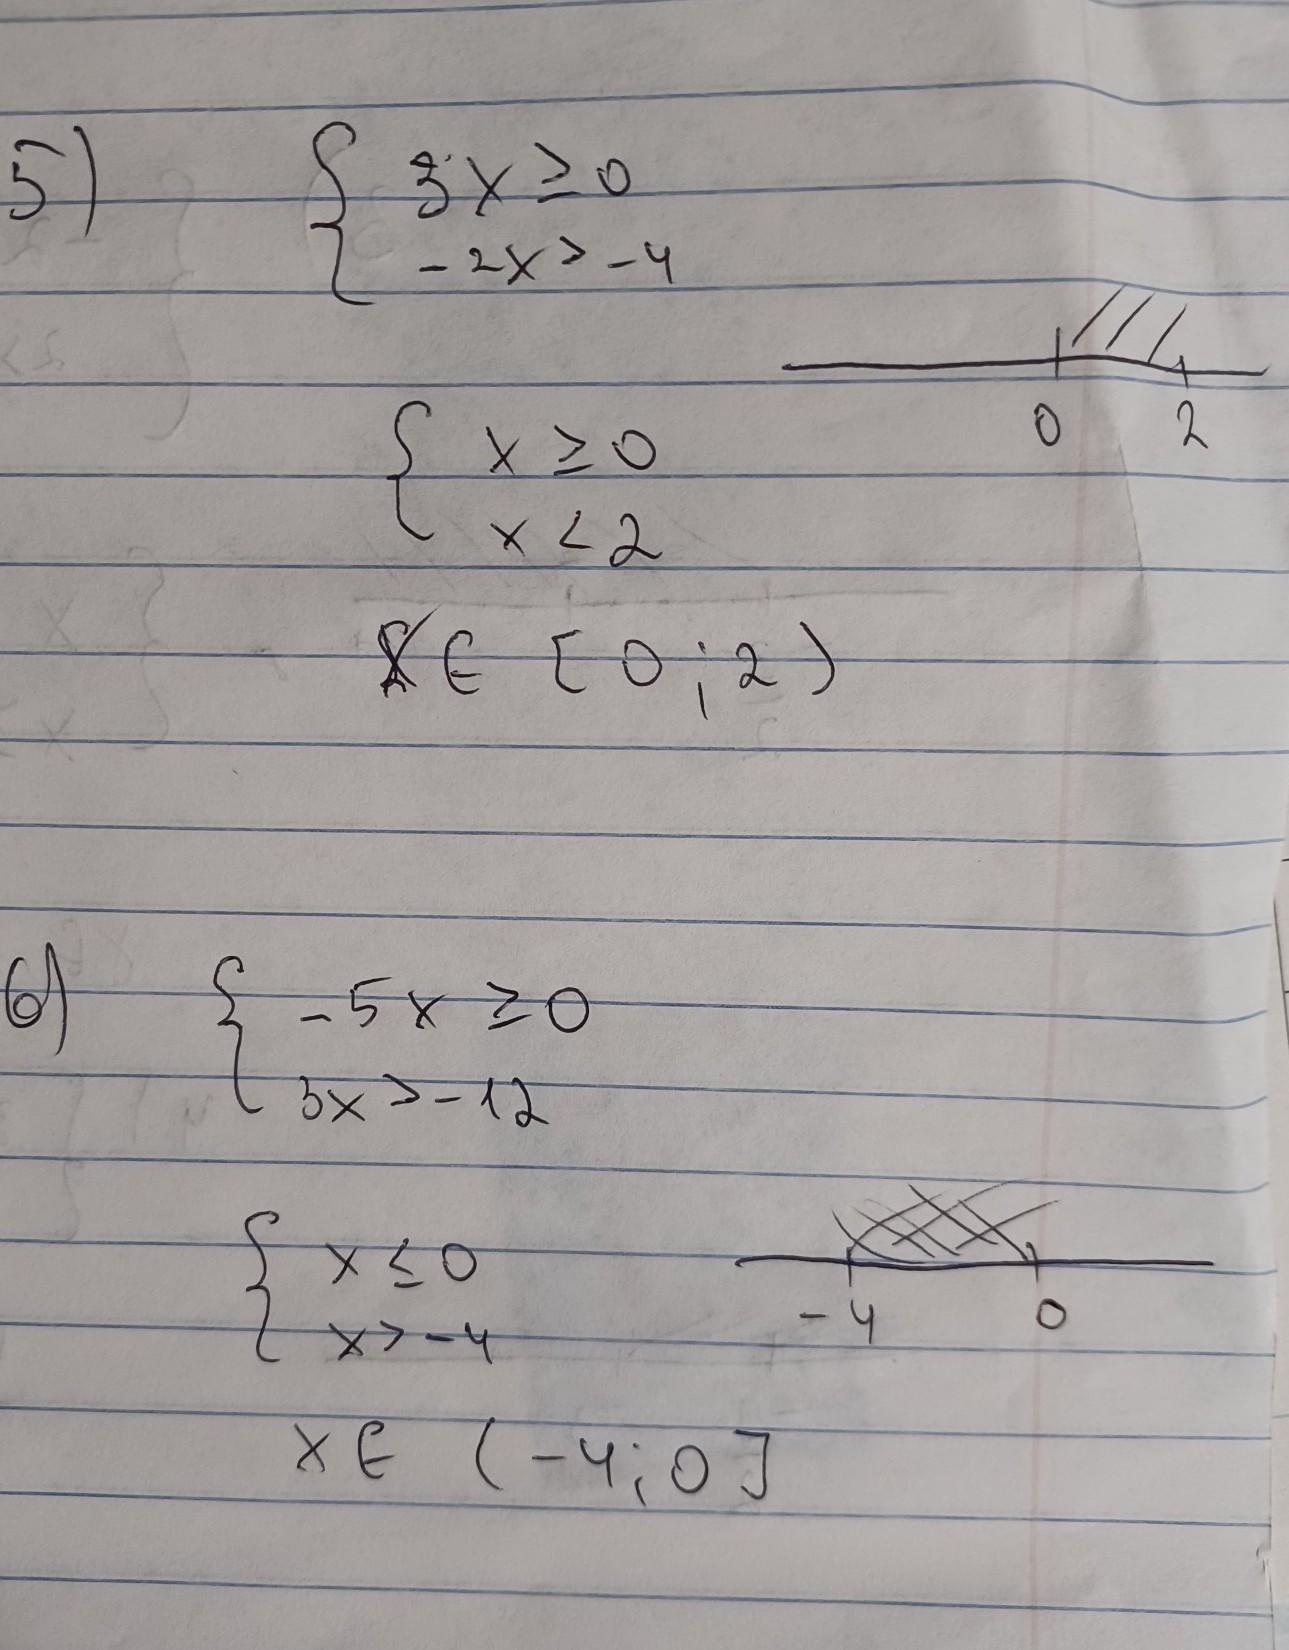 5) { 3x ≥ 0
-2x > -4
0 2
{ x ≥ 0
x < 2
x ∈ [0; 2)
6) { -5x ≥ 0
3x > -12
{ x ≤ 0
x > -4
-4 0
x ∈ (-4; 0]